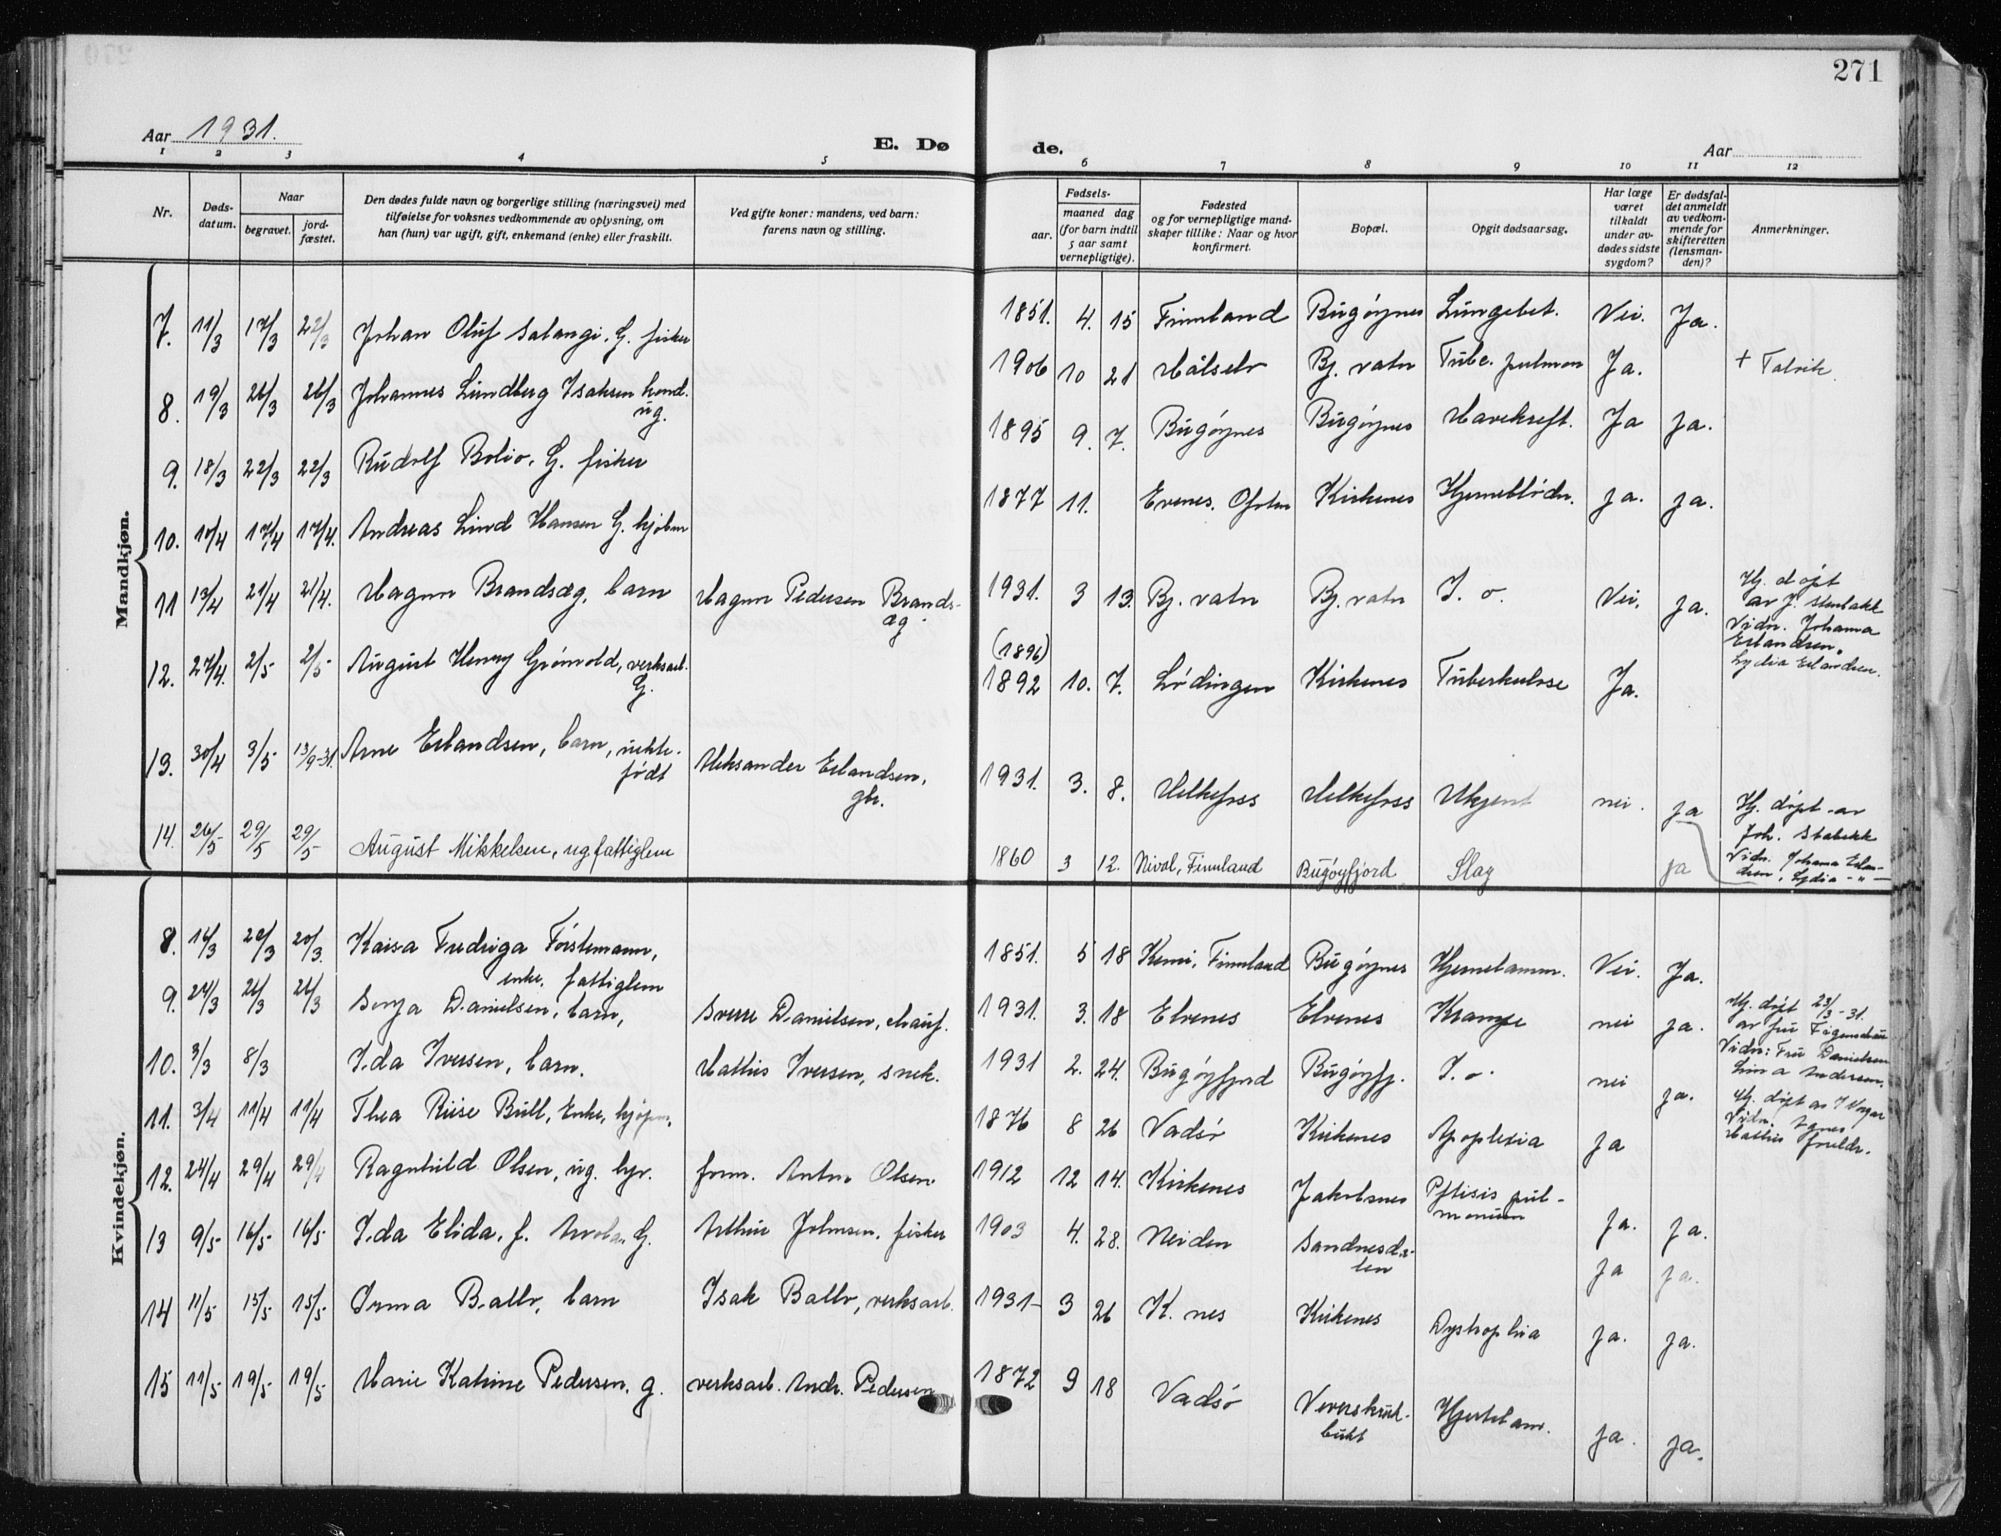 271
Aar 1931.
E. Døde.
Aar
1 2 3 4 5 6 7 8 9 10 11 12
Nr.
Dødsdatum.
Naar
begravet.
jordfæstet.
Den dødes fulde navn og borgerlige stilling (næringsvei) med
tilføielse for voksnes vedkommende av oplysning, om
han (hun) var ugift, gift, enkemand (enke) eller fraskilt.
Ved gifte koner: mandens, ved barn:
farens navn og stilling.
Fødsels-
aar.
maaned dag
(for barn indtil
5 aar samt
vernepligtige).
Fødested
og for vernepligtige mand-
skaper tillike: Naar og hvor
konfirmert.
Bopæl.
Opgit dødsaarsag.
Har læge
været
tilkaldt
under av-
dødes sidste
sygdom?
Er dødsfal-
det anmeldt
av vedkom-
mende for
skifteretten
(lensman-
den)?
Anmerkninger.
Mandkjøn.
7. 11/3 17/3 22/3 Johan Oluf Salangi, G. fisker 1851. 4. 15 Finnland Bugøynes Lungebet. Nei. Ja.
8. 19/3 26/3 26/3 Johannes Lundberg Isaksen ug. 1906 10 21 Målselv Bj. vatn Tube. pulmon Ja. + Talvik.
9. 18/3 22/3 22/3 Rudolf Bolio, G. fisker 1895 9. 7. Bugøynes Bugøynes Mavekreft. Ja Ja.
10. 10/4 17/4 17/4. Andreas Lind Hansen G. kjøbm 1877 11. Evenes. Ofoten Kirkenes Hjerneblødn. Ja. Ja.
11 13/4 21/4 21/4. Magnn Brandsæg, barn Magnn Pedersen Brands-
æg. 1931. 3 13. Bj. vatn Bj. vatn I. o. Nei. Ja. Hj. døpt
av J. Stenbakk
Vidn. Johanna
Erlandsen.
Lydia Erlandsen.
12. 27/4. 2/5 2/5 August Henry Grønvold, verksarb.
G. (1896)
1892 10. 7. Lødingen Kirkenes Tuberkulose Ja.
13. 30/4 3/5 13/9-31. Arne Erlandsen, barn, uekte-
født Aleksander Erlandsen,
gbr. 1931. 3. 8. Melkefoss Melkefoss Ukjent nei. Ja Hj. døpt av
Joh. Stabekk
Vidn. Johanna Erlan-
dsen, Lydia -"-
14. 26/5 29/5 29/5 August Mikkelsen, ug. fattiglem 1860 3 12. Nivol, Finnland Bugøyfjord Slag ja
Kvindekjøn.
8. 16/3 20/3 20/3. Kaisa Fredriga Förstemann,
enke, fattiglem 1851. 5 18 Kemi, Finnland Bugøynes Hjernelamm. Nei. Ja.
9. 24/3 26/3 26/3 Sonja Danielsen, barn, Sverre Danielsen, chauf. 1931. 3. 18 Elvenes Elvenes Krampe nei Ja. Hj. døpt 23/3-31.
av fru
Vidn: Fru Danielsen
Lina Andersen.
10. 3/3 8/3 Ida Iversen, barn. Mattis Iversen, snek. 1931 2. 24. Bugøyfjord Bugøyfj. I. o. nei Ja. Hj. døpt av
Vidn. Agnes
Mattis
11. 3/4 11/4 11/4 Thea Riise Bull, Enke, kjøpm. 1876 8 26 Vadsø Kirkenes Apoplexia Ja
12. 24/4 29/4 29/4 Ragnhild Olsen, ug. hjv. form. Anton Olsen 1912 12 14. Kirkenes Jakobsnes Pftisis pul-
monum Ja. Ja.
13 9/5 16/5 16/5 Ida Elida, f. Arvola G. Arthur Johnsen, fisker 1903 4. 28. Neiden Sandnesda-
len Ja Ja.
14 11/5 15/5 15/5 Irma Ballo, barn Isak Ballo, verksarb. 1931- 3 26 K. nes Kirkenes Dystrophia Ja. Ja.
15 11/5 19/5 19/5 Marie Katrine Pedersen. g. verksarb. Andr. Pedersen 1872 9 18 Vadsø bukt Hjertelam. Ja. Ja.